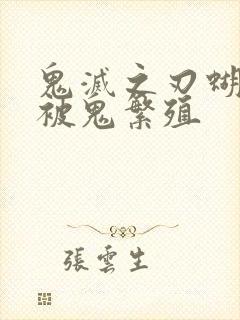 鬼滅之刃蝴
被鬼繁殖
張雲生